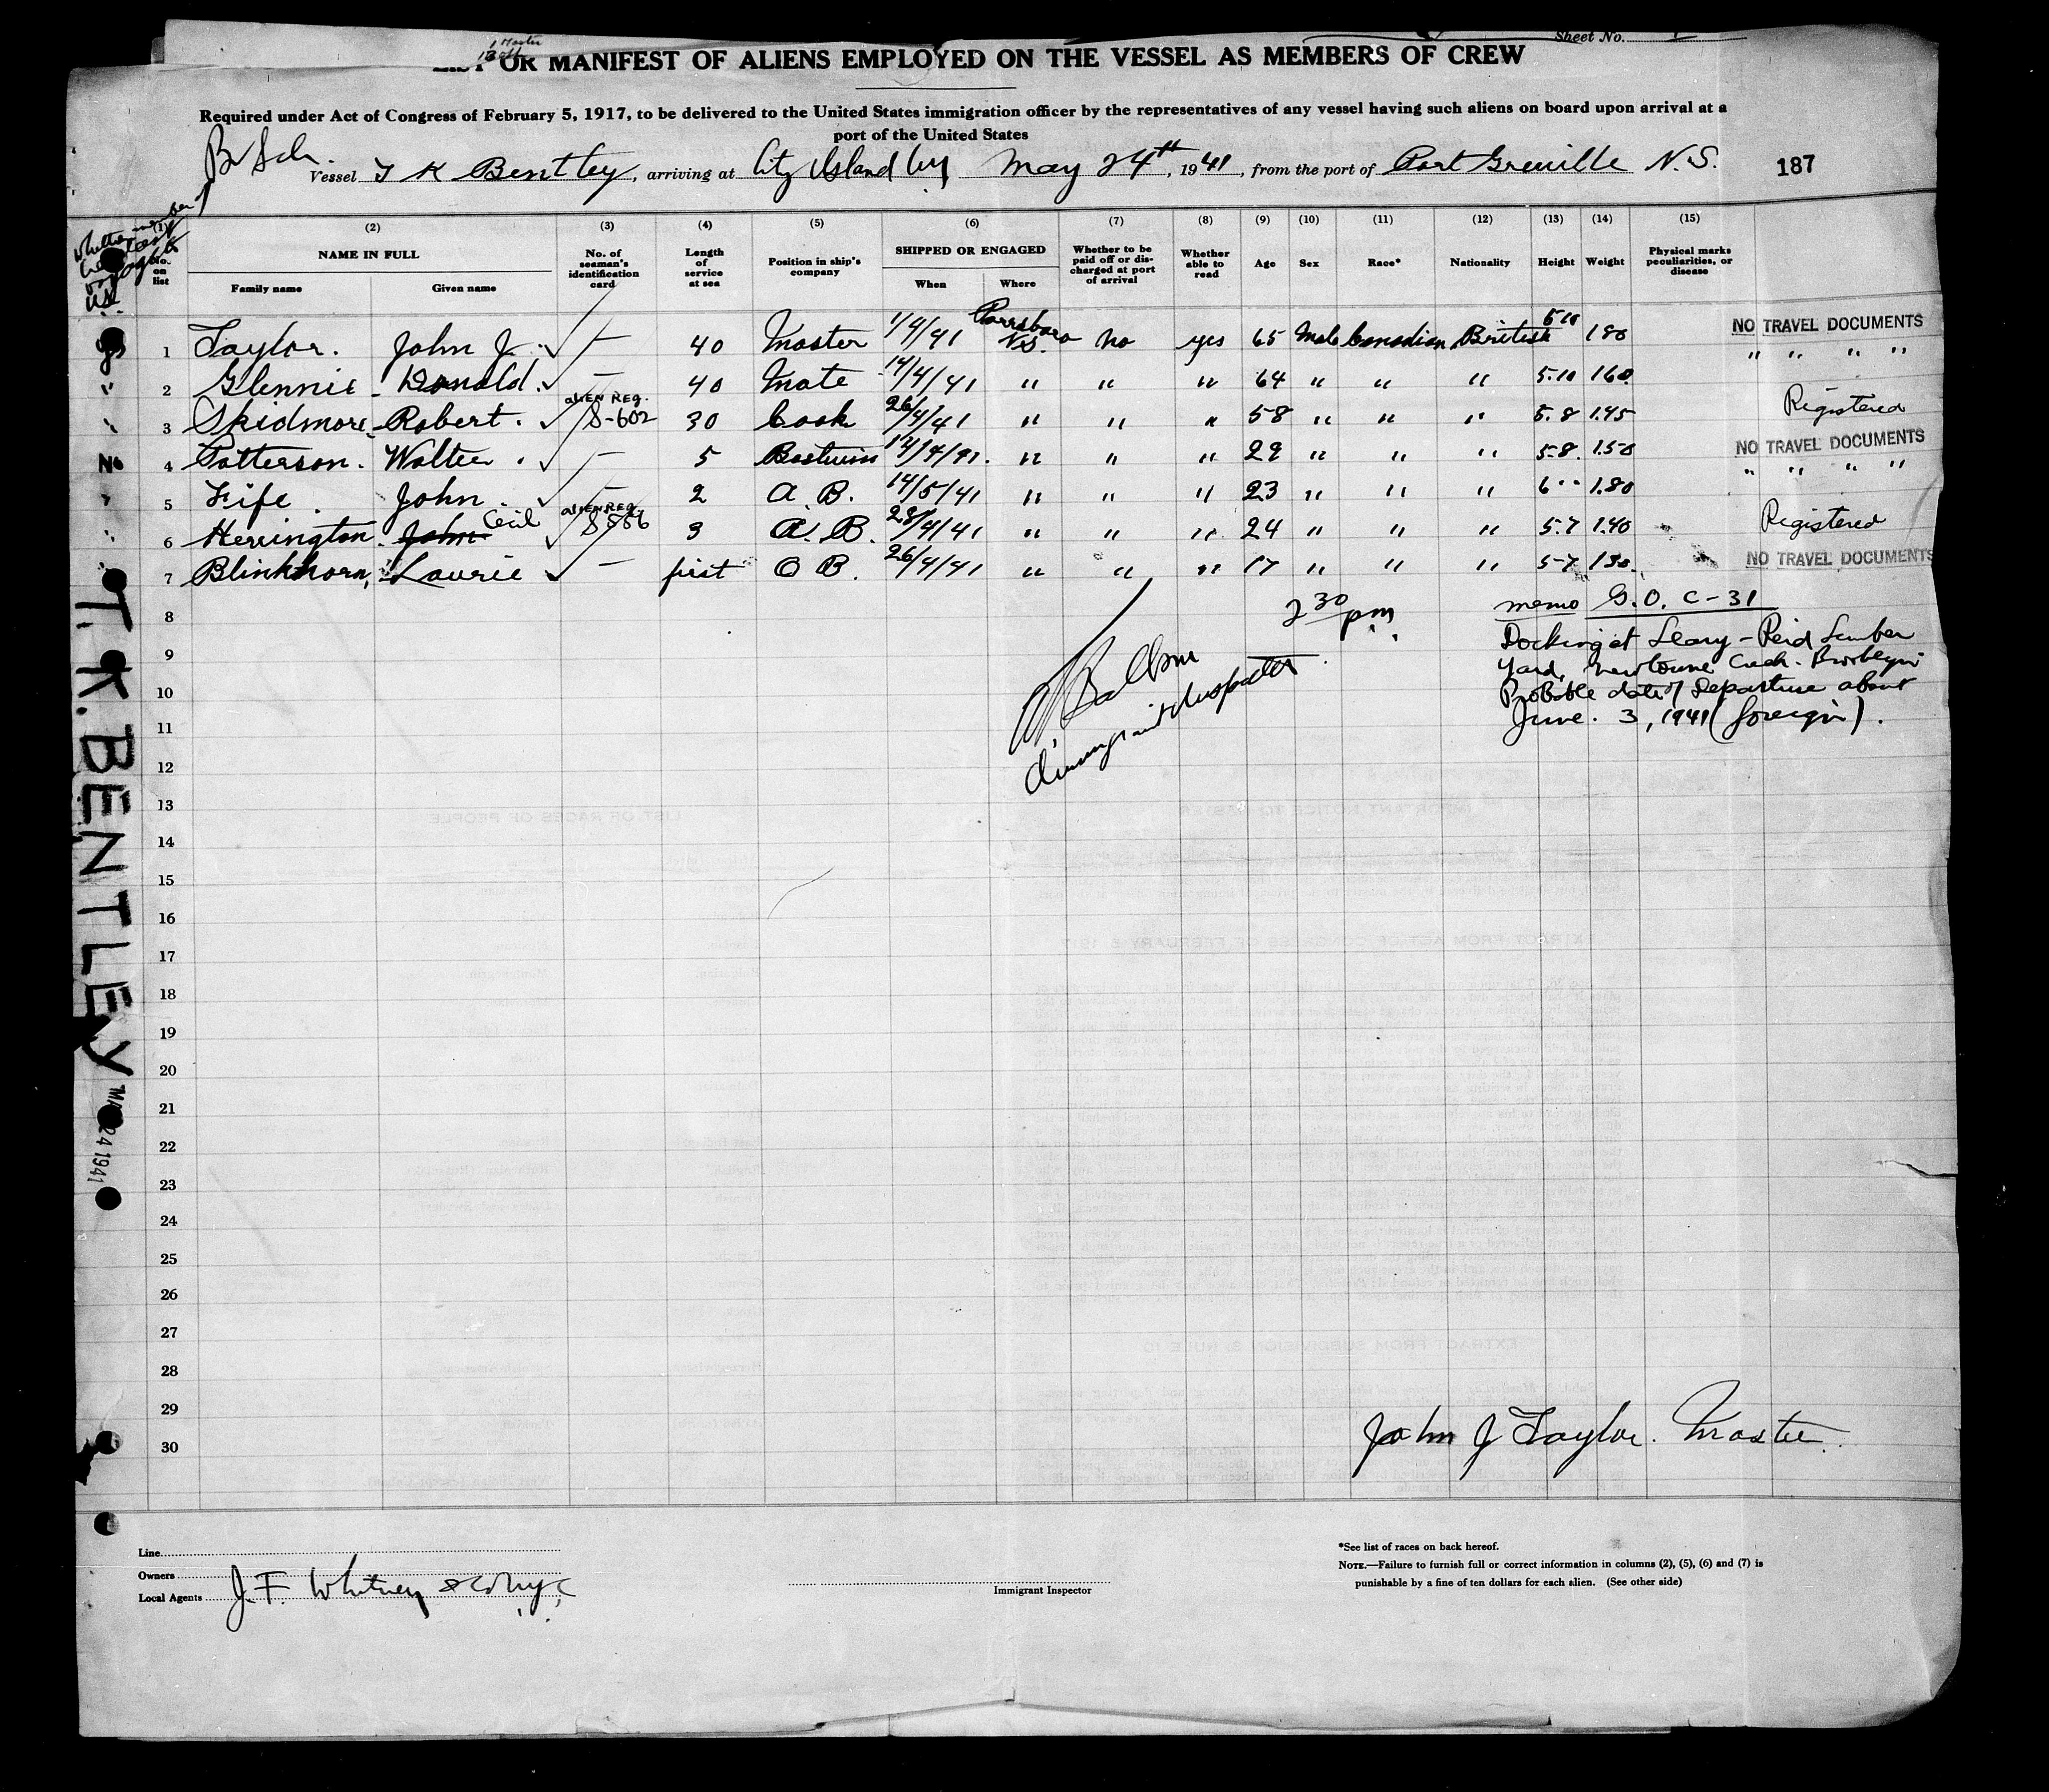 Sheet No. 1
1 Master
LIST OR MANIFEST OF ALIENS EMPLOYED ON THE VESSEL AS MEMBERS OF CREW
Required under Act of Congress of February 5, 1917, to be delivered to the United States immigration officer by the representatives of any vessel having such aliens on board upon arrival at a
port of the United States
Br Sch.
Vessel T K Bentley, arriving at City Island NY May 24th, 1941, from the port of Port Greville N.S. 187
Whether member
crew last
voyage to
U.S.
(1) (2) (3) (4) (5) (6) (7) (8) (9) (10) (11) (12) (13) (14) (15)
No. on list
NAME IN FULL
Family name Given name
No. of seaman's identification card
Length of service at sea
Position in ship's company
SHIPPED OR ENGAGED
When Where
Whether to be paid off or discharged at port of arrival
Whether able to read
Age Sex Race* Nationality Height Weight
Physical marks peculiarities, or disease
yes 1 Taylor. John J. — 40 Master 1/4/41 Parrsboro N.S. No yes 65 Male Canadian British 5 10 180 NO TRAVEL DOCUMENTS
" 2 Glennie Donald. — 40 Mate 14/4/41 " " " 64 " " " 5.10 160. " " " "
" 3 Skidmore Robert. ALIEN REG. S-602 30 Cook 26/4/41 " " " 58 " " " 5.8 145 Registered
No 4 Patterson. Walter. — 5 Bostwin 14/4/41. " " " 29 " " " 5.8. 150 NO TRAVEL DOCUMENTS
" 5 Fife. John. — 2 A. B. 14/5/41 " " " 23 " " " 6 " 180 " " " "
" 6 Herrington. John Cecil ALIEN REG. 3 A. B. 28/4/41 " " " 24 " " " 5.7 140 Registered
7 Blinkhorn, Laurie — first O B. 26/4/41 " " " 17 " " " 5-7 130. NO TRAVEL DOCUMENTS
8
9
10
11
12
13
14
15
16
17
18
19
20
21
22
23
24
25
26
27
28
29
30
2 30 pm
memo G.O. C-31
Docking at Leary-Reid Lumber
Yard, Newtowne Creek. Brooklyn
Probable date of Departure about
June. 3, 1941 (foreign).
Immigrant Inspector
T. K. BENTLEY
MAY 24 1941
John J Taylor. Master.
Line
Owners
Local Agents J. F. Whitney & Co NYC
Immigrant Inspector
*See list of races on back hereof.
NOTE.—Failure to furnish full or correct information in columns (2), (5), (6) and (7) is
punishable by a fine of ten dollars for each alien. (See other side)